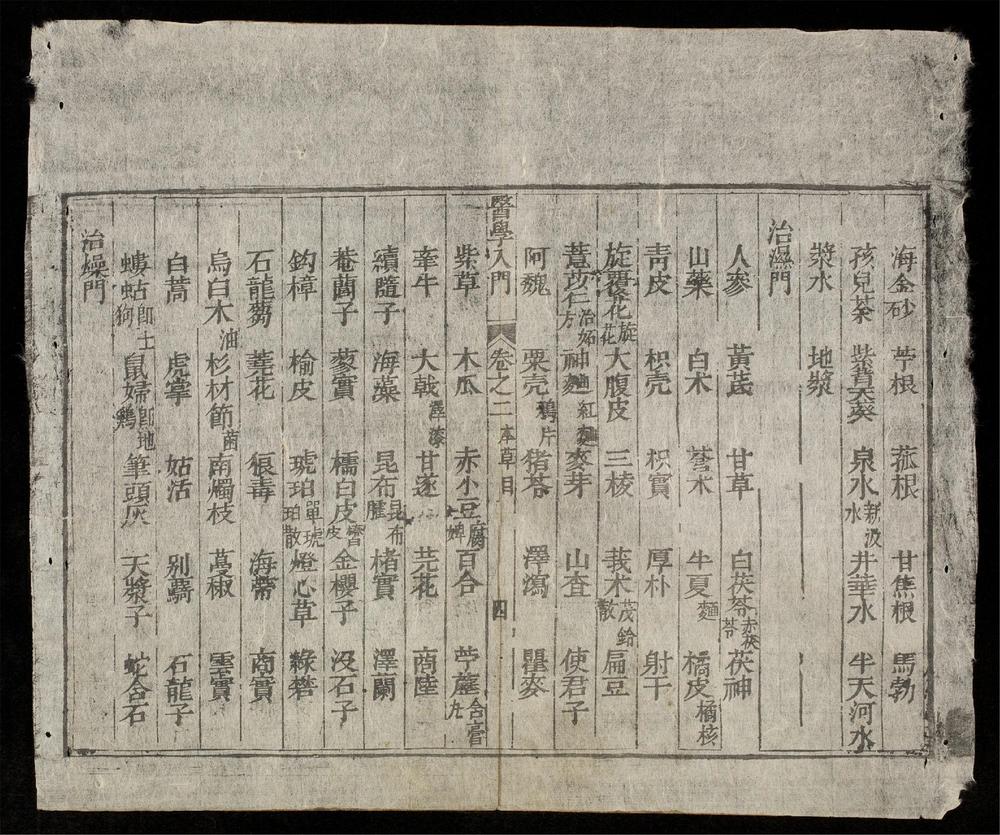 海金砂 苧根 菰根 甘焦根 馬勃
孩兒茶 紫背天葵 泉水新汲水 井華水 半天河水
漿水 地漿
治濕門
人參 黃芪 甘草 白茯苓赤茯苓 茯神
山藥 白术 蒼术 半夏麯 橘皮橘核
青皮 枳壳 枳實 厚朴 射干
旋覆花旋花 大腹皮 三棱 莪术茂鈴散 扁豆
薏苡仁治妬方 神麯紅麯 麥芽 山査 使君子
阿魏 粟壳鴉片 猪苓 澤瀉 瞿麥
醫學入門 卷之二 本草目 四
紫草 木瓜 赤小豆腐婢 百合 葶藶含膏丸
牽牛 大戟澤漆 甘遂 芫花 商陸
續隨子 海藻 昆布昆布臛 楮實 澤蘭
菴䕡子 蓼實 檽白皮皮 金櫻子 没石子
鈎樟 榆皮 琥珀單琥珀散 燈心草 綠礬
石龍芻 蕘花 狼毒 海蒂 商實
烏臼木油 杉材節菌 南燭枝 蔓椒 雲實
白蒿 虎掌 姑活 別覊 石龍子
螻蛄即土狗 鼠婦即地鷄 筆頭灰 天漿子 蛇含石
治燥門